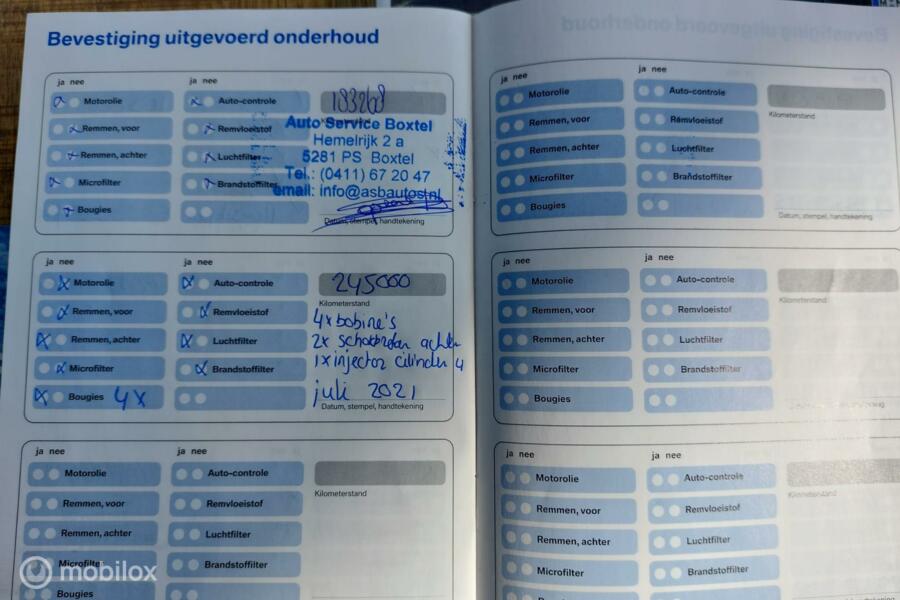 Bevestiging uitgevoerd onderhoud
ja nee
ja nee
Motorolie
Auto-controle
183268
Remmen, voor
Remvloeistof
Auto Service Boxtel
Hemelrijk 2 a
Remmen, achter
Luchtfilter
5281 PS Boxtel
Tel.: (0411) 67 20 47
Microfilter
Brandstoffilter
email: info@asbautos.nl
Bougies
Datum, stempel, handtekening
ja nee
ja nee
Motorolie
Auto-controle
245000
Kilometerstand
Remmen, voor
Remvloeistof
4x bobine's
Remmen, achter
Luchtfilter
2x schokbreker achter
Microfilter
Brandstoffilter
1x injector cilinder 4
Bougies 4x
juli 2021
Datum, stempel, handtekening
ja nee
ja nee
Motorolie
Auto-controle
Kilometerstand
Remmen, voor
Remvloeistof
Remmen, achter
Luchtfilter
Microfilter
Brandstoffilter
Bougies
ja nee
ja nee
Motorolie
Auto-controle
Kilometerstand
Remmen, voor
Remvloeistof
Remmen, achter
Luchtfilter
Microfilter
Brandstoffilter
Bougies
Datum, stempel, handtekening
ja nee
ja nee
Motorolie
Auto-controle
Kilometerstand
Remmen, voor
Remvloeistof
Remmen, achter
Luchtfilter
Microfilter
Brandstoffilter
Bougies
ja nee
ja nee
Motorolie
Auto-controle
Kilometerstand
Remmen, voor
Remvloeistof
Remmen, achter
Luchtfilter
Microfilter
Brandstoffilter
mobilox